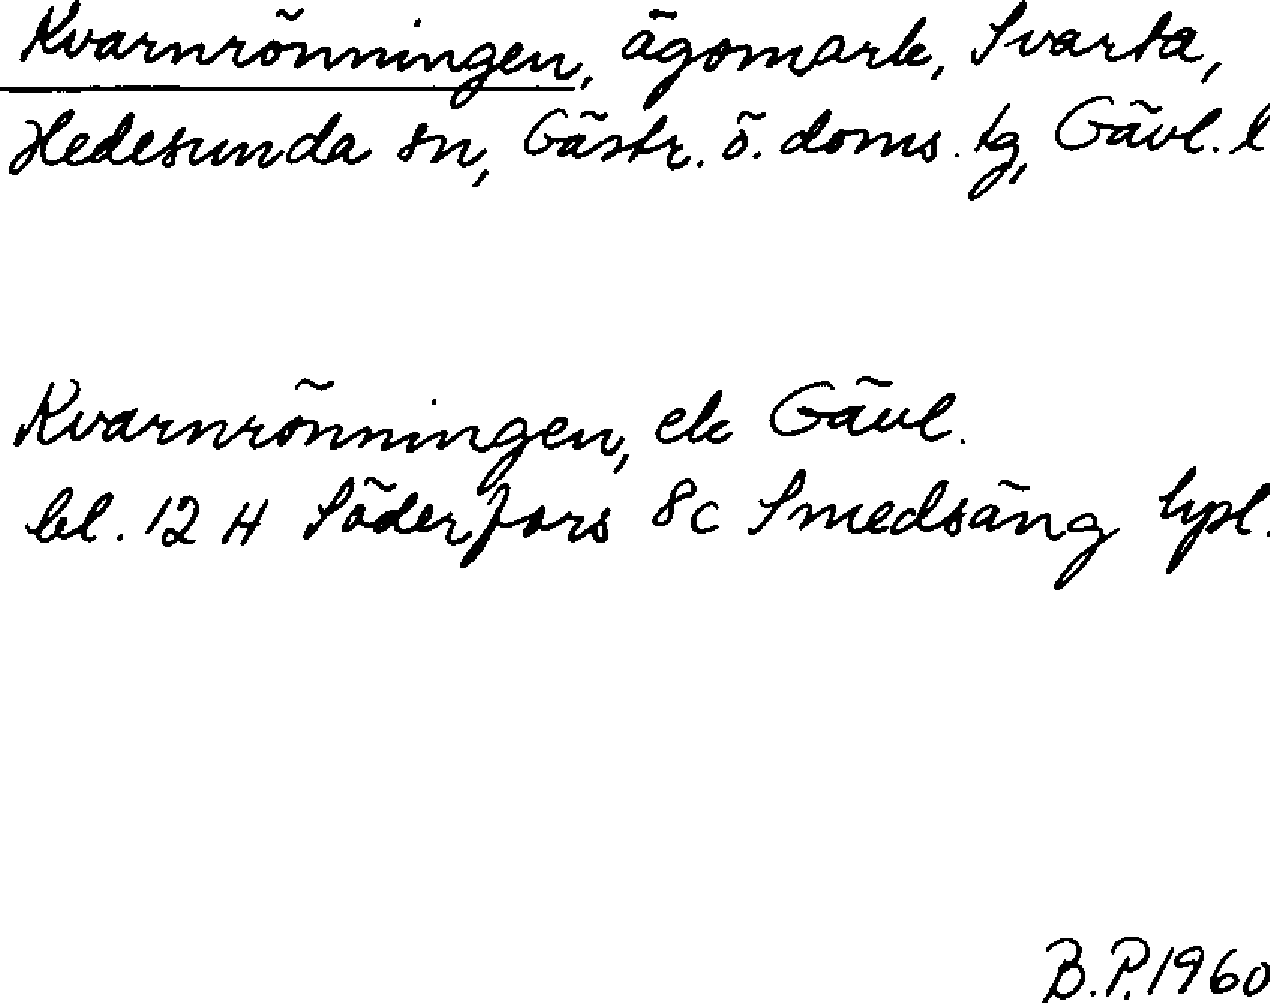 Kvarnrönningen, ägomark, Svarta,
Hedesunda sn, Gästr. ö. doms. tg, Gävl. l
Kvarnrönningen, ek Gävl.
bl. 12 H Söderfors 8c Smedsäng hpl.
B.P. 1960